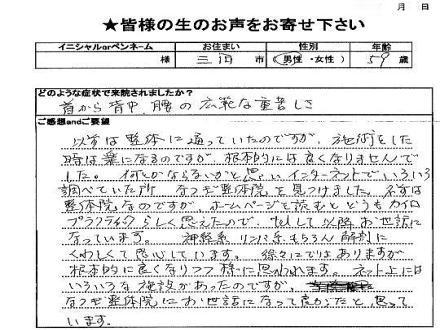 月 日
★皆様の生のお声をお寄せ下さい
イニシャルorペンネーム お住まい 性別 年齢
様 市 男性・女性 59 歳
どのような症状で来院されましたか?
首から背中、腰の広範な重苦しさ
ご感想andご要望
以前は整体に通っていたのですが、施術をした
時は楽になるのですが、根本的には良くなりませんで
した。何とかならないかと思い、インターネットでいろいろ
調べていた所 なつぎ整体院を見つけました。名前は
整体院なのですが、ホームページを読むとどうもカイロ
プラクティックらしく思えたので、として以降お世話に
なっています。神経系、リンパ系もちろん解剖に
くわしくて感心しています。徐々にではありますが
根本的に良くなりつつ様に思われます。ネット上には
いろいろな施設があったのですが、
なつぎ整体院にお世話になって良かったと思って
います。